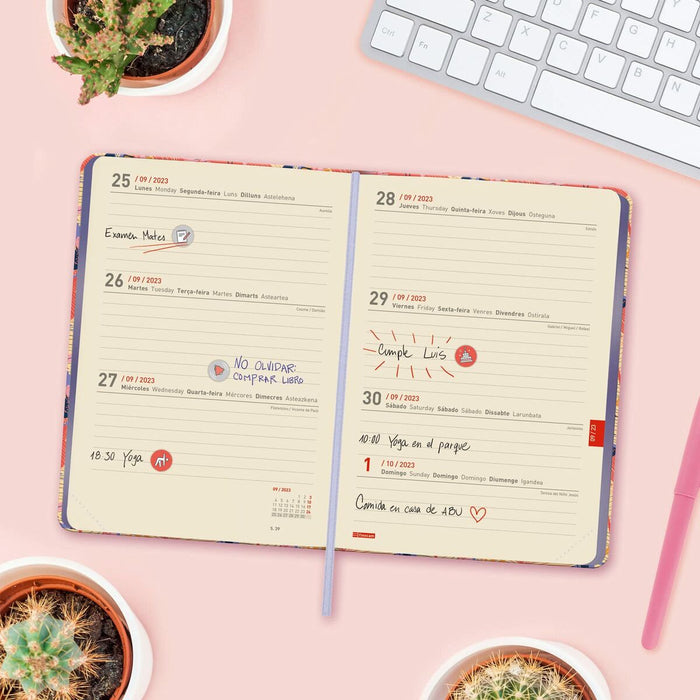 Ctrl
Fn
Alt
Z
S
X
D
C
F
V
G
B
H
N
J
M
K
25 / 09 / 2023
Lunes Monday Segunda-feira Luns Dilluns Astelehena
Aurelia
Examen Mates
26 / 09 / 2023
Martes Tuesday Terça-feira Martes Dimarts Asteartea
Cosme / Damián
NO OLVIDAR:
COMPRAR LIBRO
27 / 09 / 2023
Miércoles Wednesday Quarta-feira Mércores Dimecres Asteazkena
Florentino / Vicente de Paúl
18:30 Yoga
09 / 2023
1 2 3
4 5 6 7 8 9 10
11 12 13 14 15 16 17
18 19 20 21 22 23 24
25 26 27 28 29 30
S. 39
28 / 09 / 2023
Jueves Thursday Quinta-feira Xoves Dijous Osteguna
29 / 09 / 2023
Viernes Friday Sexta-feira Venres Divendres Ostirala
Gabriel / Miguel / Rafael
Cumple Luis
30 / 09 / 2023
Sábado Saturday Sábado Sábado Dissabte Larunbata
Jerónimo
10:00 Yoga en el parque
1 / 10 / 2023
Domingo Sunday Domingo Domingo Diumenge Igandea
Teresa del Niño Jesús
Comida en casa de ABU
09 / 23